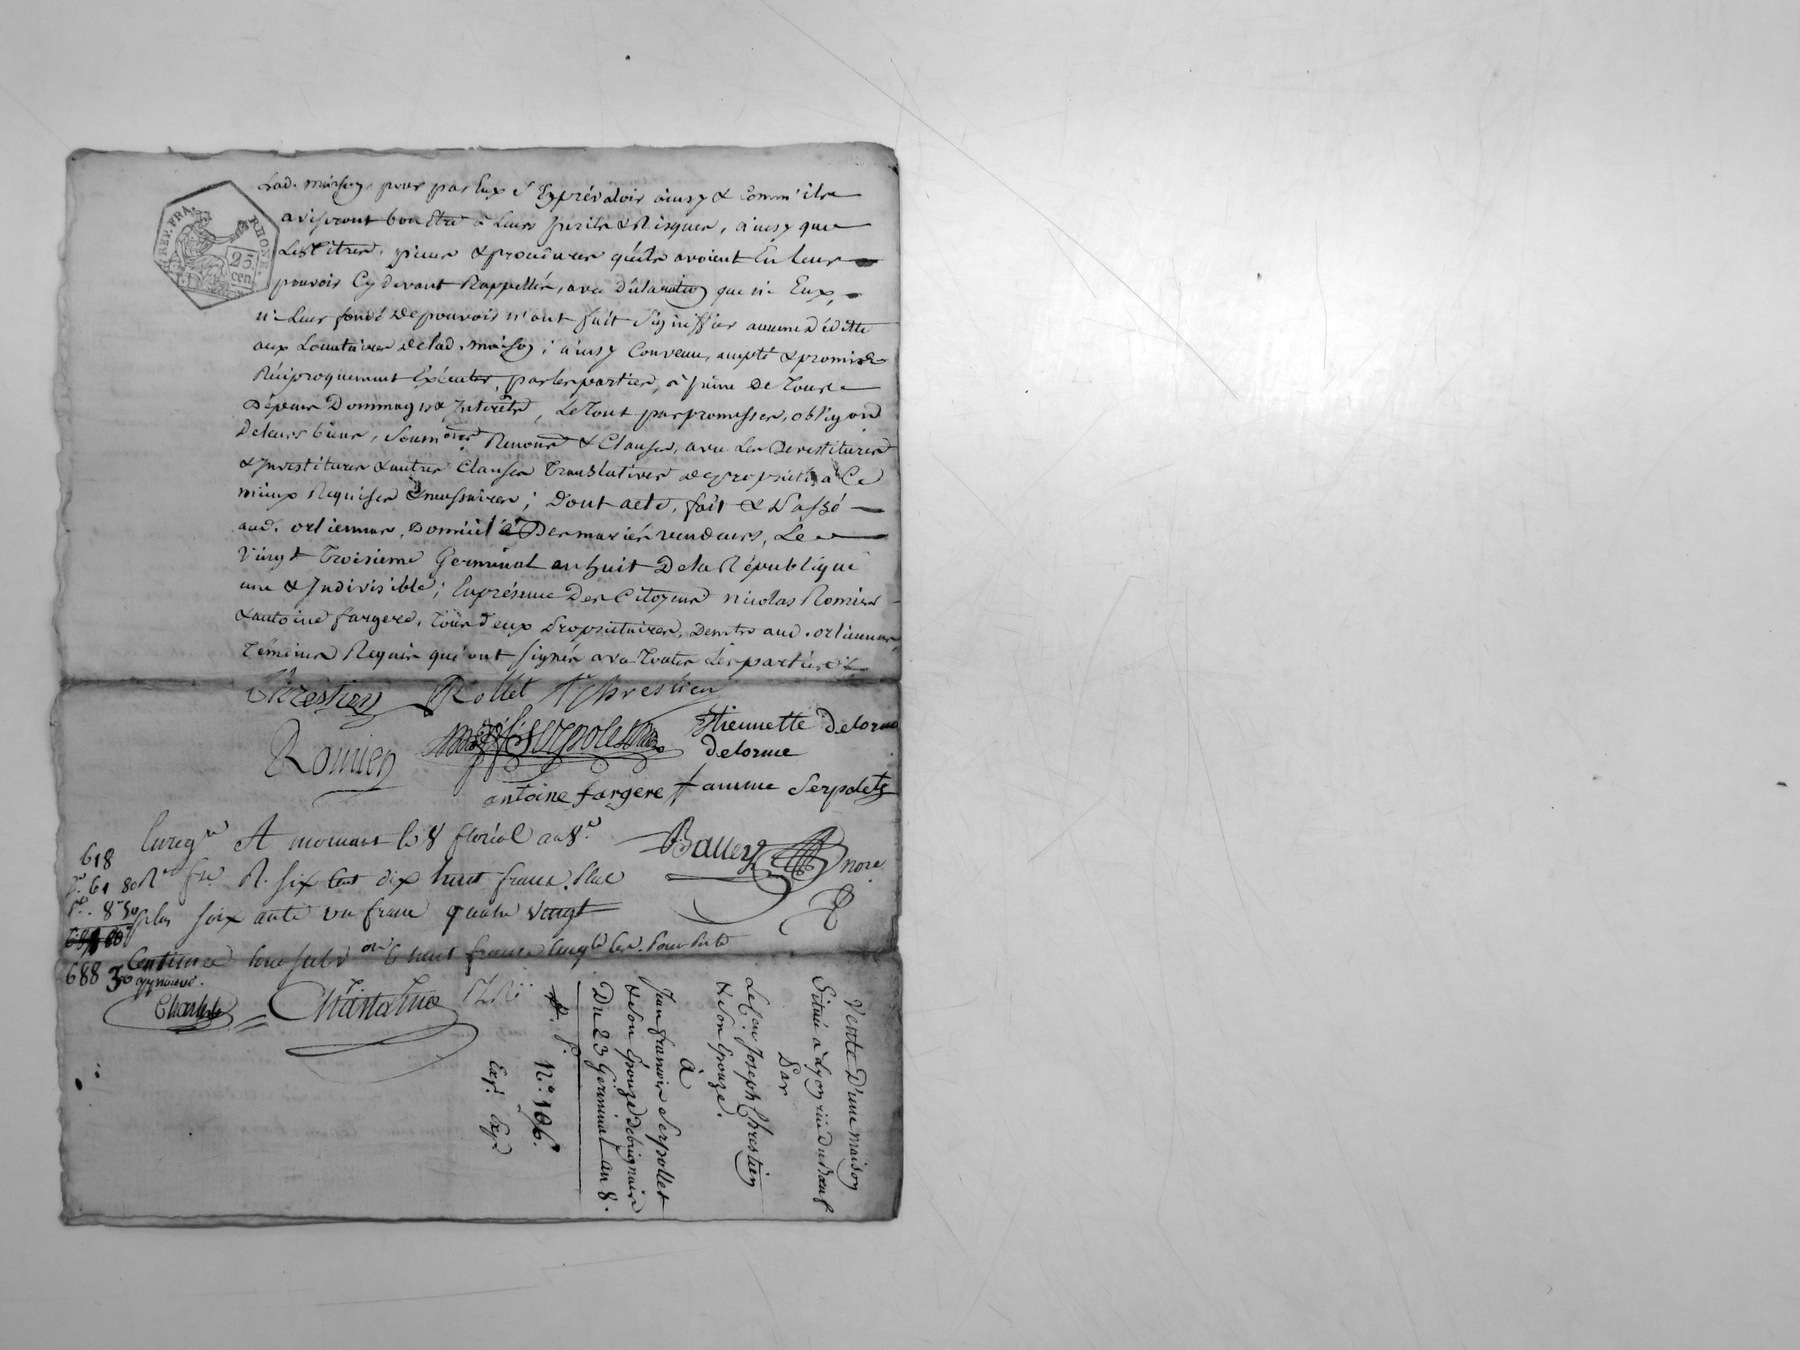 REP. FRA.
RHONE.
25
cen
Lad. maison pour par Eux s'Eyprévaloir ainsy & Comm'ils
aviseront bon être à Leurs périls & Risques, ainsy que
Les titres, pieces & procédures quils avoient En leur
pouvoir Cy devant Rappellés, avec Déclaration que ni Eux,
ni Leur fondé De pouvoir n'ont fait Signiffier aucune déditte
aux Locataires de lad. maison; ainsy Convenu, accepté & promis
Réciproquement Exécuter, par les parties, à peine De Tous
Dépens Dommages & Interêts, Le Tout par promesses, oblig.ons
De leurs biens, Soum.ons Renonc.ons & Clauses, avec Les Devestitures
& Investitures & autres Clauses Translatives de propriété à Ce
mieux Requises & necessaires; Dont acte, fait & Passé
aud. orliennas, Domicile Des mariés vendeurs, Le
vingt Troisieme Germinal an huit De la République
une & Indivisible; En présence Des Citoyens nicolas Romier
& antoine fargere, Tous Deux Propriétaires, Dem.ts aud. orliennas,
Temoins Requis qui ont signés avec Toutes Les parties
Chrestien Rollet f.e Chrestien
Romier Serpollet Etiennette Delorme
delorme
antoine fargere femme Serpolet
Enreg.é A mornant le 8 floréal an 8.e
Ballez no.re
618
61 80 R. six Cent dix huit francs. Plus
8 50 plus soixante un franc quatre vingt
Centimes
688 30
Vente D'une maison
Située à Lyon rue du Bœuf
Par
Le C.en Joseph Chrestien
& Son Epouze.
à
Jean françois Serpollet
& Son Epouze De brignais
Du 23 Germinal an 8.
N.o 196.
Exp.